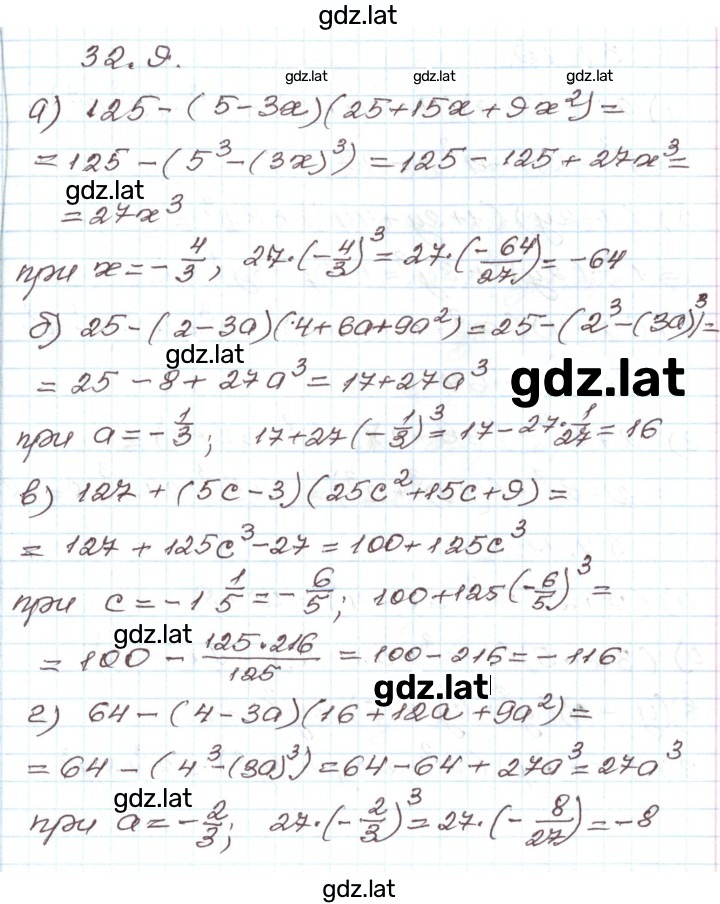 gdz.lat
32.9.
gdz.lat gdz.lat gdz.lat
а) 125 - (5 - 3x)(25 + 15x + 9x²) =
= 125 - (5³ - (3x)³) = 125 - 125 + 27x³ =
gdz.lat
= 27x³
при x = -4/3, 27·(-4/3)³ = 27·(-64/27) = -64
б) 25 - (2 - 3a)(4 + 6a + 9a²) = 25 - (2³ - (3a)³) =
gdz.lat
= 25 - 8 + 27a³ = 17 + 27a³
gdz.lat
при a = -1/3; 17 + 27(-1/3)³ = 17 - 27·1/27 = 16
в) 127 + (5c - 3)(25c² + 15c + 9) =
= 127 + 125c³ - 27 = 100 + 125c³
при c = -1 1/5 = -6/5; 100 + 125(-6/5)³ =
gdz.lat
= 100 - 125·216/125 = 100 - 216 = -116
gdz.lat
г) 64 - (4 - 3a)(16 + 12a + 9a²) =
= 64 - (4³ - (3a)³) = 64 - 64 + 27a³ = 27a³
gdz.lat
при a = -2/3; 27·(-2/3)³ = 27·(-8/27) = -8
gdz.lat